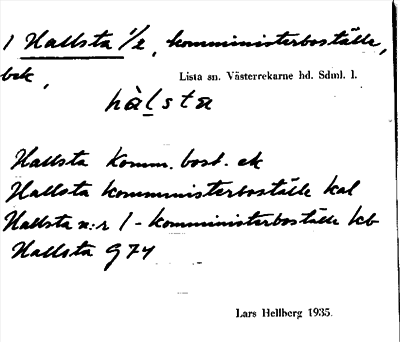 1 Hallsta 1/2, komministerboställe,
bek,
Lista sn. Västerrekarne hd. Sdml. l.
hàlsta
Hallsta Komm. bost. ek
Hallsta komministerboställe kal
Hallsta n:r 1 - komministerboställe kb
Hallsta G74
Lars Hellberg 1935.